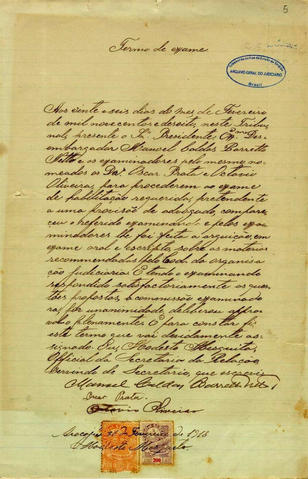 5
Termo de exame
ARQUIVO GERAL DO JUDICIÁRIO
Brasil
Aos vinte e seis dias do mez de Fevereiro
de mil novecentos e dezoito, neste Tribu-
nal, presente o Sr. Presidente, Des-
embargador Manoel Caldas Barreto
Netto e os examinadores pelo mesmo no-
meados os Drs. Oscar Prata e Octavio
Oliveira, para procederem ao exame
de habilitação requerido, pretendente
a uma provisão de advogado, compare-
ceu o referido examinando e pelos exa-
minadores lhe foi feita a arguição, em
exame oral e escripto, sobre as materias
recommendadas pela de organisa-
ção judiciaria. E tendo o examinando
respondido satisfactoriamente as ques-
tões propostas, a commissão examinado-
ra, por unanimidade, deliberou appro-
val-o plenamente. E para constar fiz
este termo que vai devidamente as-
signado. Eu, Modesto Mesquita,
Official da Secretaria da Relação,
servindo de Secretario, que escrevi
Manoel Caldas Barreto Netto
Oscar Prata
Octavio Oliveira
Aracajú, de Fevereiro de 1918
Modesto Mesquita
200